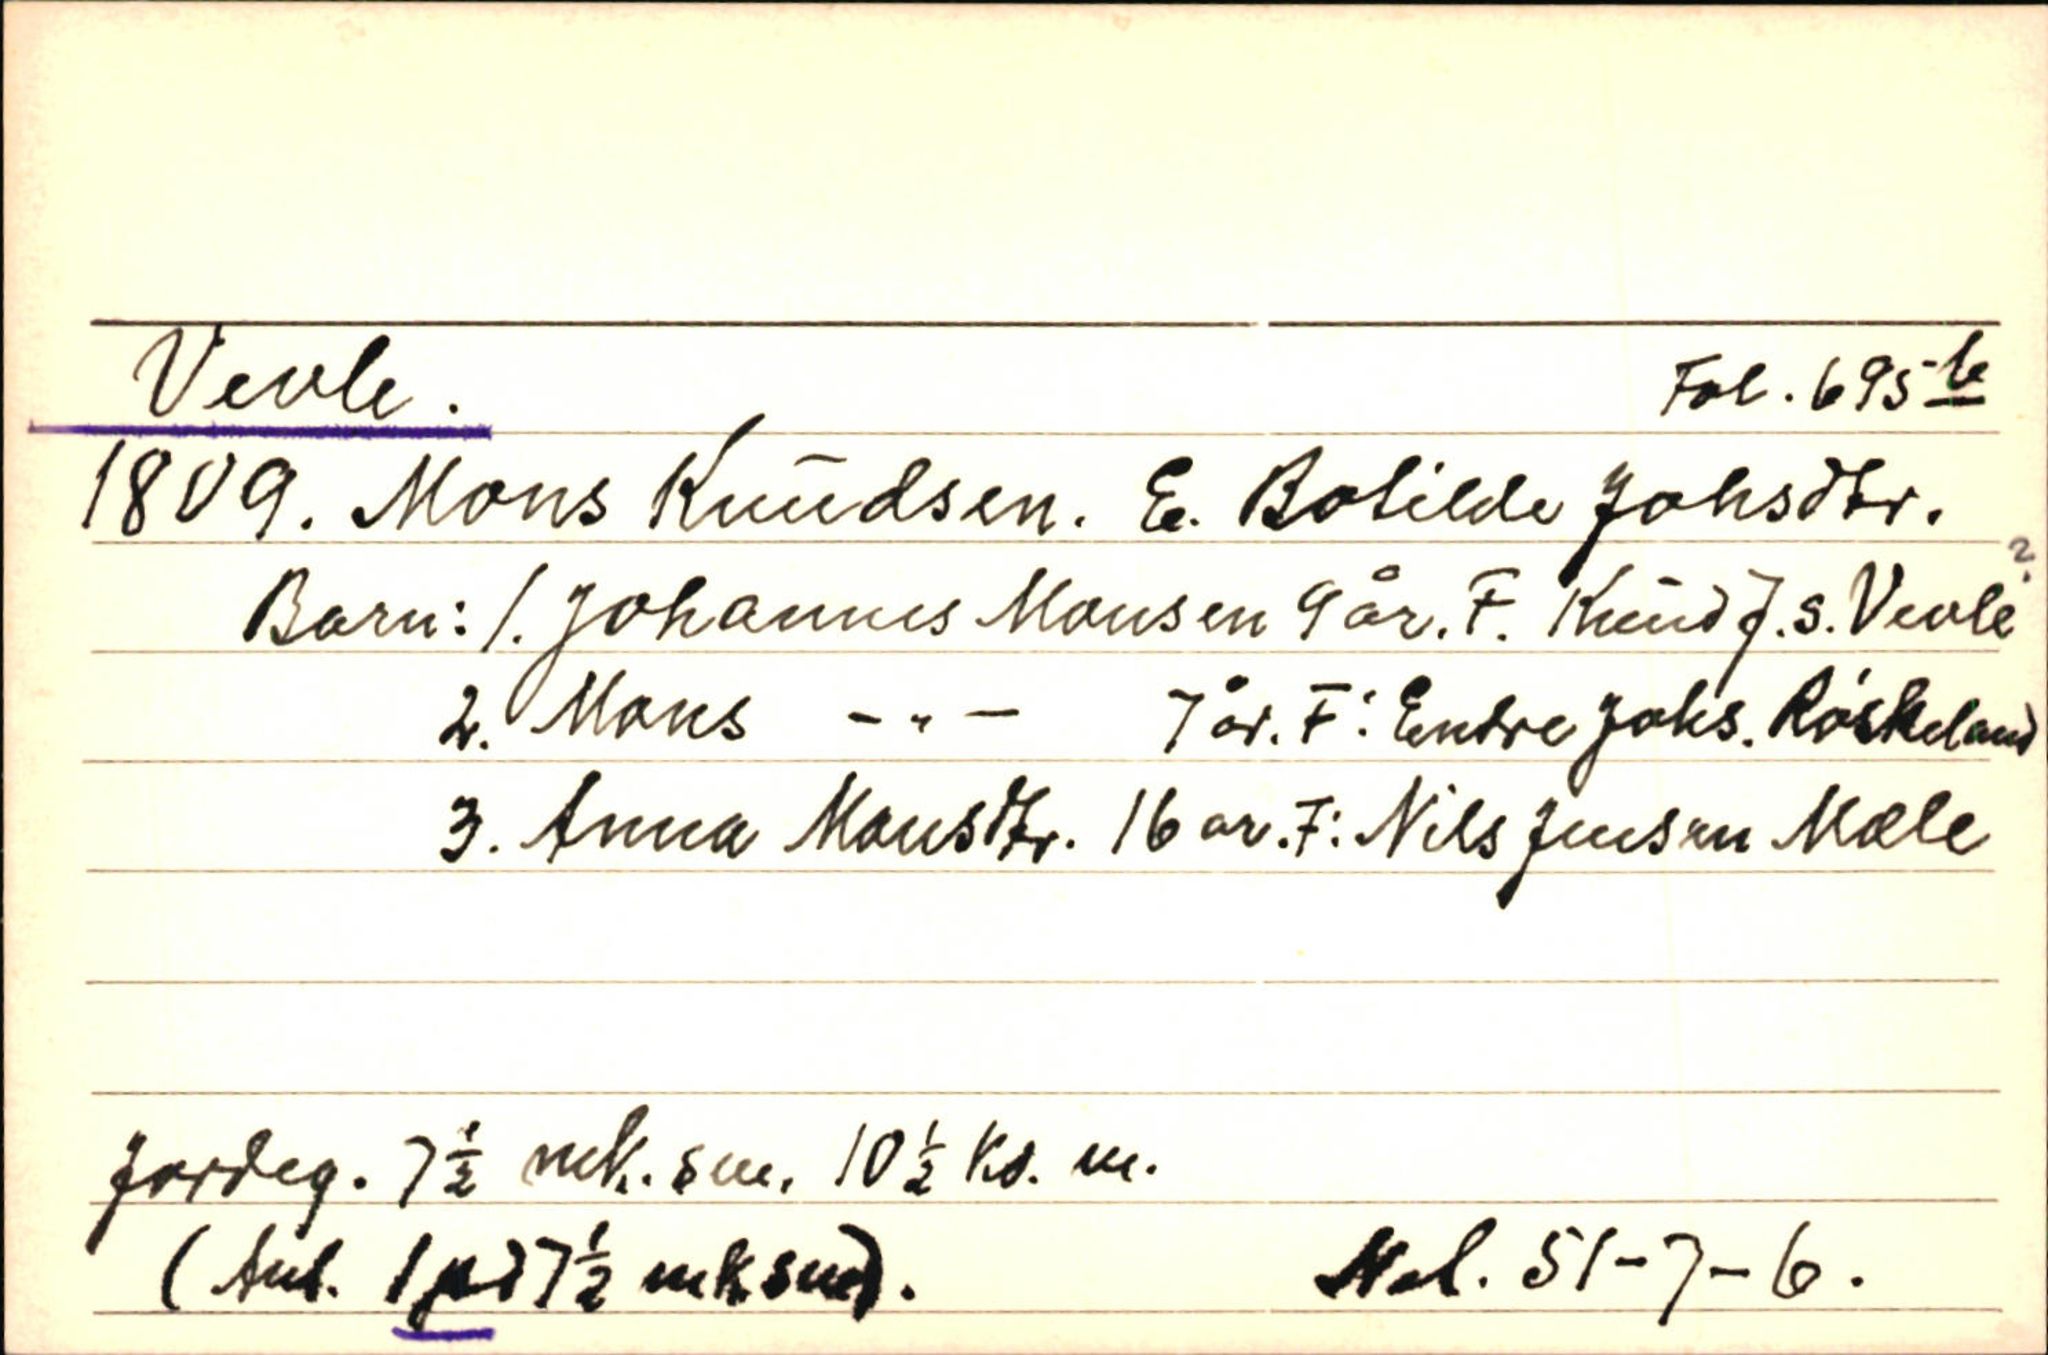 Vevle. Fol. 695 b
1809. Mons Knudsen. E. Botilde Johsdtr.
Barn: 1. Johannes Monsen 9 år. F. Knud J. s. Vevle ?
2. Mons - " - 7 år. F: Endre Johs. Røskeland
3. Anna Monsdtr. 16 ar. F: Nils Jensen Mæle
Jordeg. 7 1/2 mk. sm. 10 1/2 ks. m.
(Anl. 1 pd 7 1/2 mk smø).
Nel. 51-7-6.